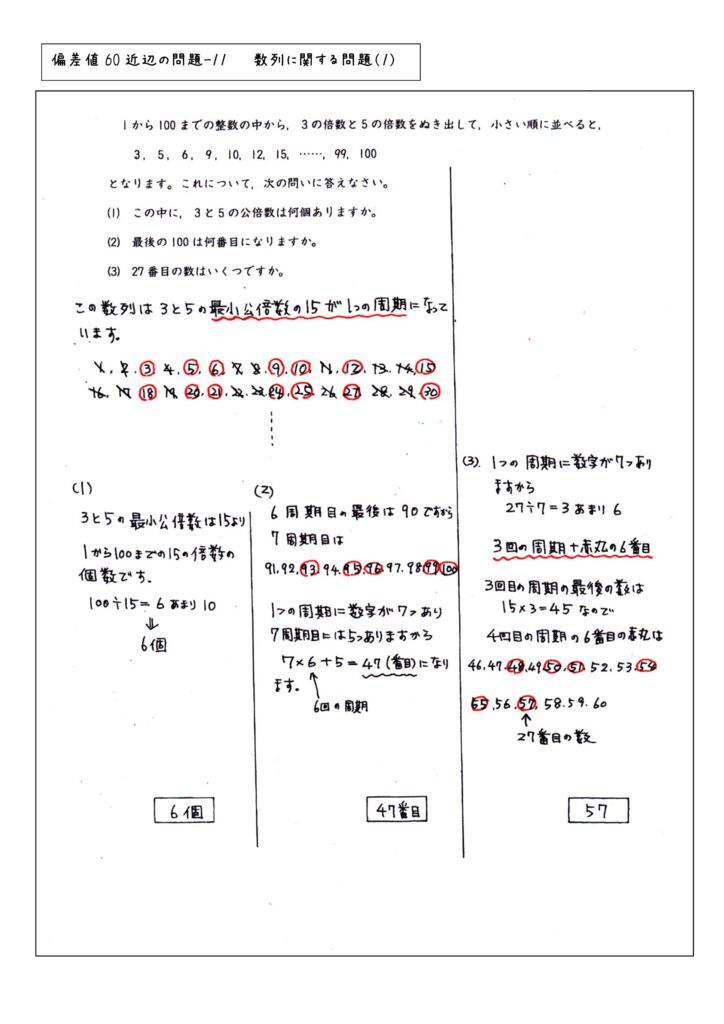 偏差値60近辺の問題-11　数列に関する問題(1)
1から100までの整数の中から，3の倍数と5の倍数をぬき出して，小さい順に並べると，
3，5，6，9，10，12，15，……，99，100
となります。これについて，次の問いに答えなさい。
(1) この中に，3と5の公倍数は何個ありますか。
(2) 最後の100は何番目になりますか。
(3) 27番目の数はいくつですか。
この数列は3と5の最小公倍数の15が1つの周期になって
います。
1, 2, 3, 4, 5, 6, 7, 8, 9, 10, 11, 12, 13, 14, 15
16, 17, 18, 19, 20, 21, 22, 23, 24, 25, 26, 27, 28, 29, 30
(1)
3と5の最小公倍数は15より
1から100までの15の倍数の
個数です。
100÷15=6あまり10
⇓
6個
6個
(2)
6周期目の最後は90ですから
7周期目は
91, 92, 93, 94, 95, 96, 97, 98, 99, 100
1つの周期に数字が7つあり
7周期目には5つありますから
7×6+5=47(番目)になり
ます。
6回の周期
47番目
(3). 1つの周期に数字が7つあり
ますから
27÷7=3あまり6
3回の周期+赤丸の6番目
3回目の周期の最後の数は
15×3=45なので
4回目の周期の6番目の赤丸は
46, 47, 48, 49, 50, 51, 52, 53, 54
55, 56, 57, 58, 59, 60
27番目の数
57